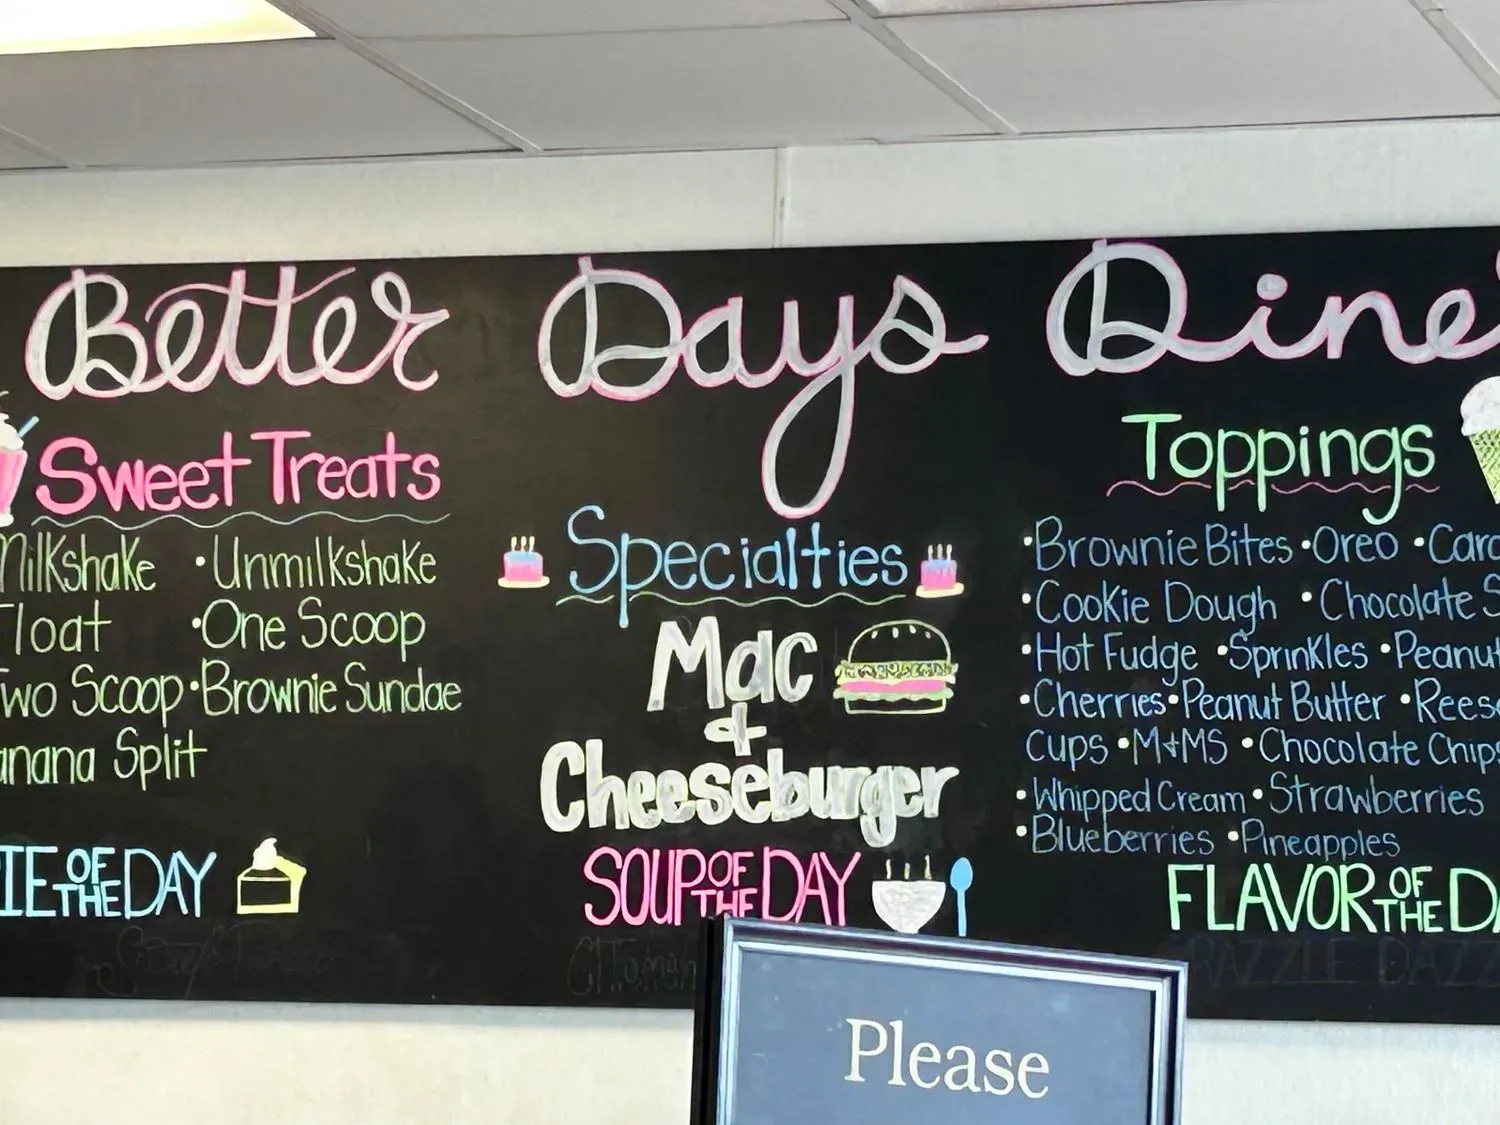 Better Days Diner
Sweet Treats
Milkshake •Unmilkshake
Float •One Scoop
Two Scoop •Brownie Sundae
anana Split
IE OF THE DAY
Specialties
Mac
&
Cheeseburger
SOUP OF THE DAY
Toppings
•Brownie Bites •Oreo •Car
•Cookie Dough •Chocolate S
•Hot Fudge •Sprinkles •Peanut
•Cherries •Peanut Butter •Reese
Cups •M+MS •Chocolate Chips
•Whipped Cream •Strawberries
•Blueberries •Pineapples
FLAVOR OF THE DA
RAZZLE DAZZ
Please